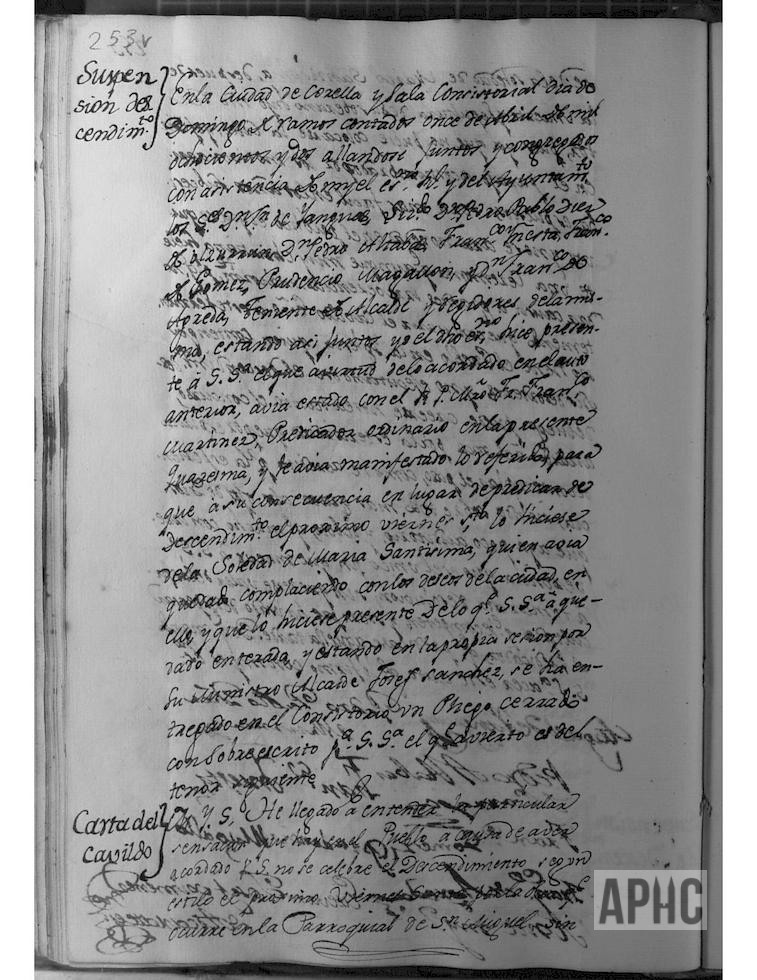 253v
Suspen
sión del
cendim.to
En la Ciudad de Corella y Sala Consistorial dia de
Domingo de Ramos contados once de Abril de mil
ochocientos y dos allandose juntos y congregados
con asistencia de my el es.no R.l y del Ayuntam.to
los S.es D.n de Sanguesa, D.n Pedro Pablo Diez
de Ulzurrun D.n Pedro Alhaba, Fran.co Yñesta, Fran.co
de Gomez, Prudencio Magallon, y D.n Fran.co de
Agreda, Teniente de Alcalde y Regidores de la mis-
ma, estando asi juntos yo el dho es.no hice presen-
te á S. S.a el que a virtud de lo acordado en el auto
anterior, avia estado con el R. P. Mro Fr. Fran.co
Martinez, Predicador ordinario en la presente
Quaresma, y le avia manifestado lo referido, para
que á su consecuencia en lugar de predicar de
Descendim.to el proximo viernes s.to lo hiciese
de la Soledad de Maria Santisima, quien avia
quedado complaciendo con los deseos de la ciudad, en
ello, y que lo hiciese presente De lo q.e S. S.a á que-
dado enterada, y estando en la propia sesion por
su Ministro Alcaide Josef Sanchez, se há en-
tregado en el Consistorio un Pliego cerrado
con sobreescrito p.a S. S.a el q.e avierto es del
tenor siguiente
Carta del
Cavildo
M. Y. S. He llegado á entender la particular
sensacion que hay en el Pueblo a causa de aver
acordado V.S. no se celebre el Descendimiento segun
estilo el proximo Viernes Santo
ocurre en la Parroquial de S.n Miguel, sin
APHC